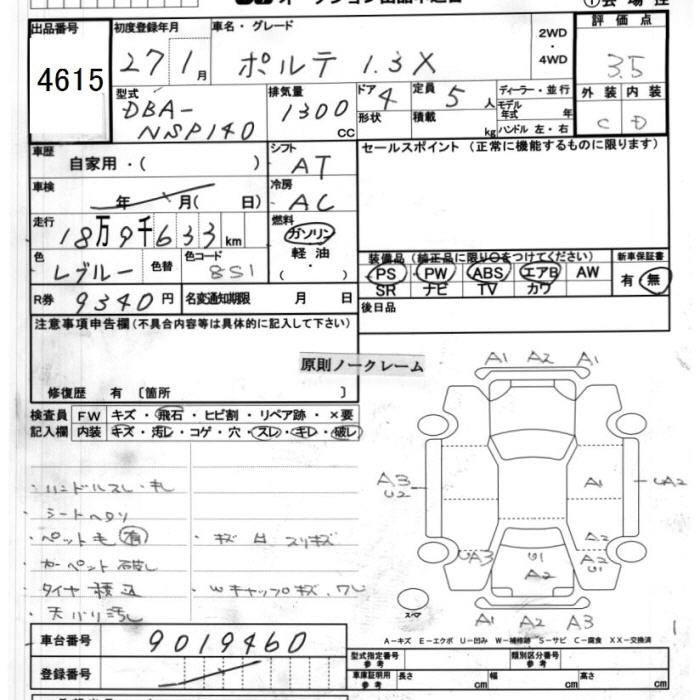 出品番号
4615
初度登録年月
27 1月
車名・グレード
ポルテ 1.3X
2WD
・
4WD
評価点
3.5
外装 内装
C D
型式
DBA-
NSP140
排気量
1300
CC
ドア
4
形状
定員
5人
積載
kg
ディーラー・並行
モデル年式 年
ハンドル 左・右
車歴
自家用・( )
シフト
AT
車検
年 月( 日)
冷房
AC
走行
18万9千633km
燃料
ガソリン
軽油
・
( )
色
Lブルー
色替
色コード
8S1
R券 9340円
名変通知期限 月 日
セールスポイント (正常に機能するものに限ります)
装備品 (純正品に限り○をつけてください)
PS PW ABS エアB AW
SR ナビ TV カワ
新車保証書
有 無
後日品
注意事項申告欄 (不具合内容等は具体的に記入して下さい)
原則ノークレーム
修復歴 有 〔箇所 〕
検査員
記入欄
FW キズ・飛石・ヒビ割・リペア跡・×要
内装 キズ・汚し・コゲ・穴・スレ・キレ・破し
ハンドルスレ・キレ
シートヘタリ
ペット毛 有
カーペット破し
タイヤ積込
天カワ汚し
・キズ 凹 スリキズ
・Wキャップキズ、ワレ
A1 A2 A1
A3
U2
A1
UA2
A2
A2
U1
UA3
U1
A2
A1 A2 A3
スペア
1
A-キズ E-エクボ U-凹み W-補修跡 S-サビ C-腐食 XX-交換済
車台番号 9019460
登録番号
型式指定番号
参考
類別区分番号
参考
車庫証明用
参考
長さ cm
幅 cm
高さ cm